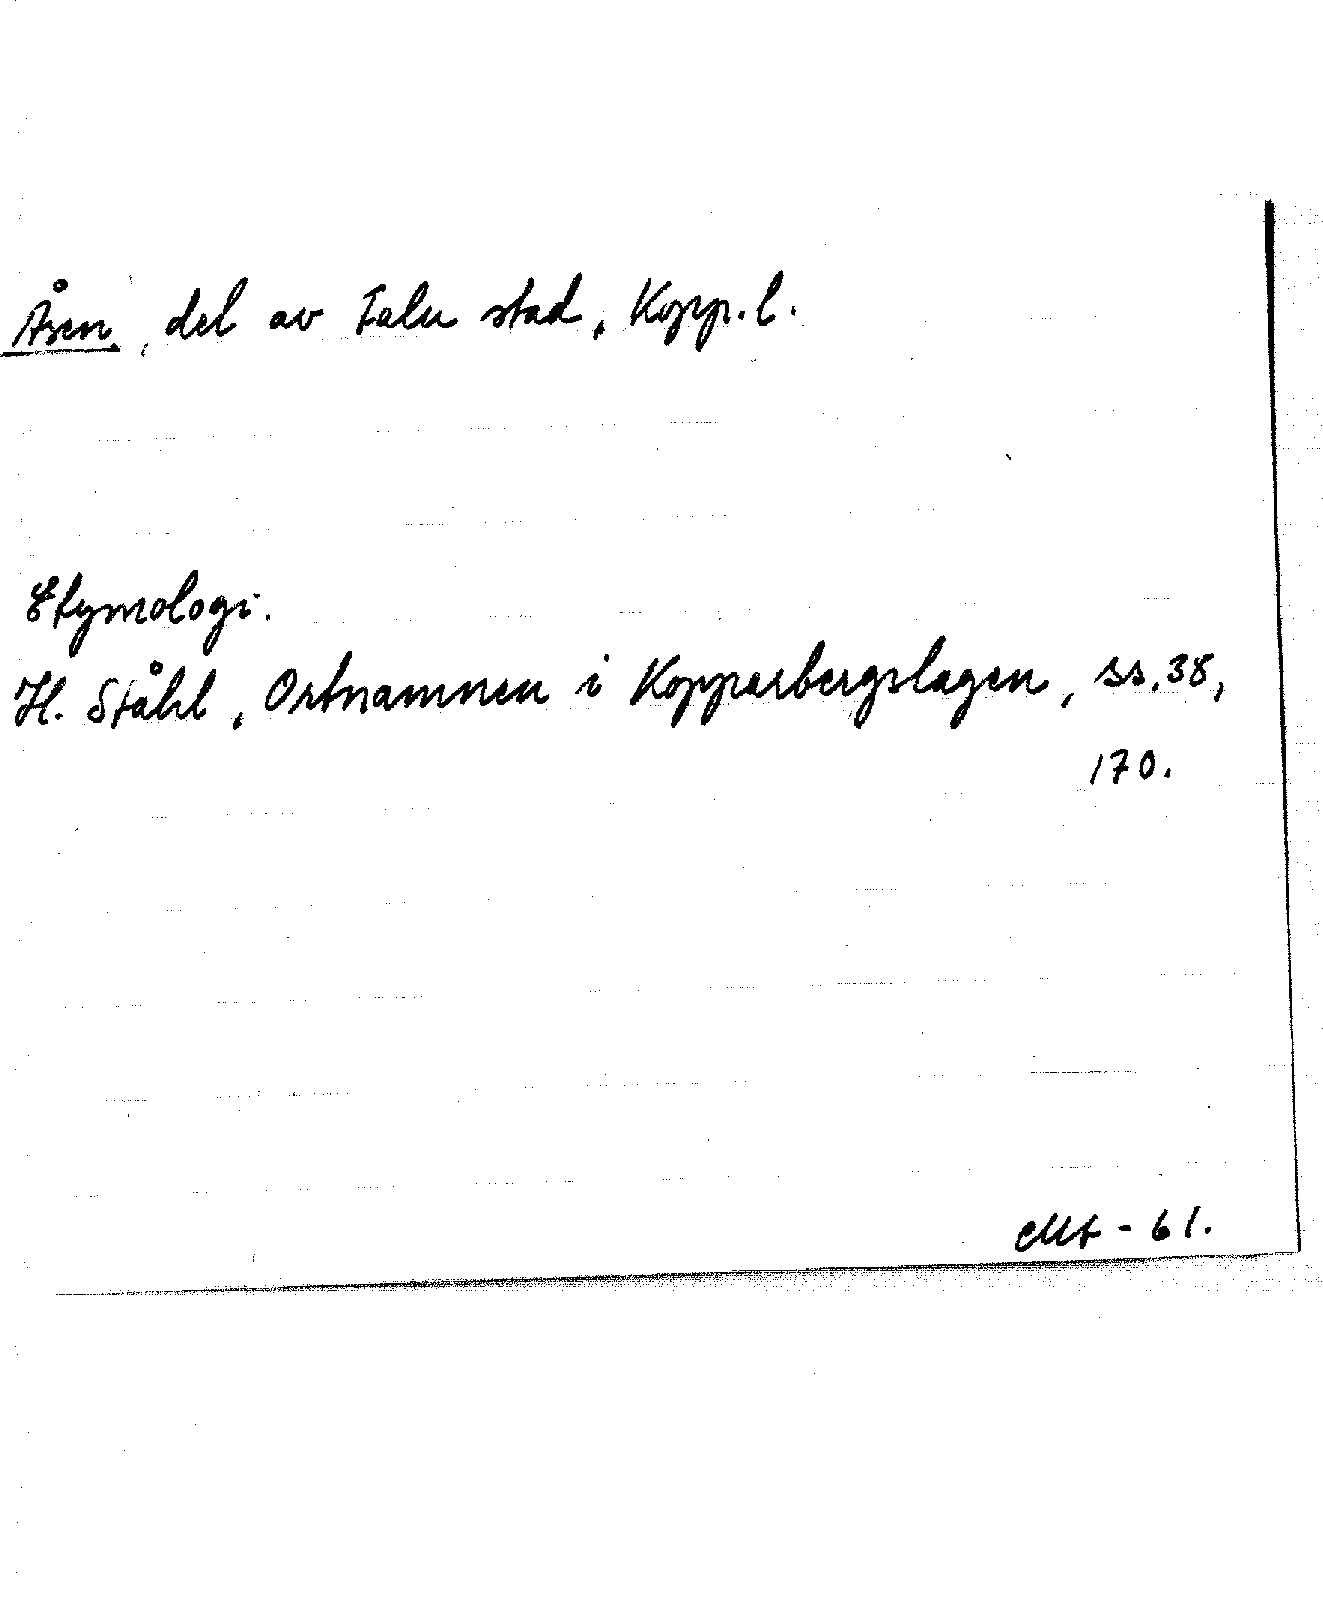 Åsen, del av Falu stad, Kopp. l.
Etymologi.
H. Ståhl, Ortnamnen i Kopparbergslagen, ss. 38,
170.
-61.